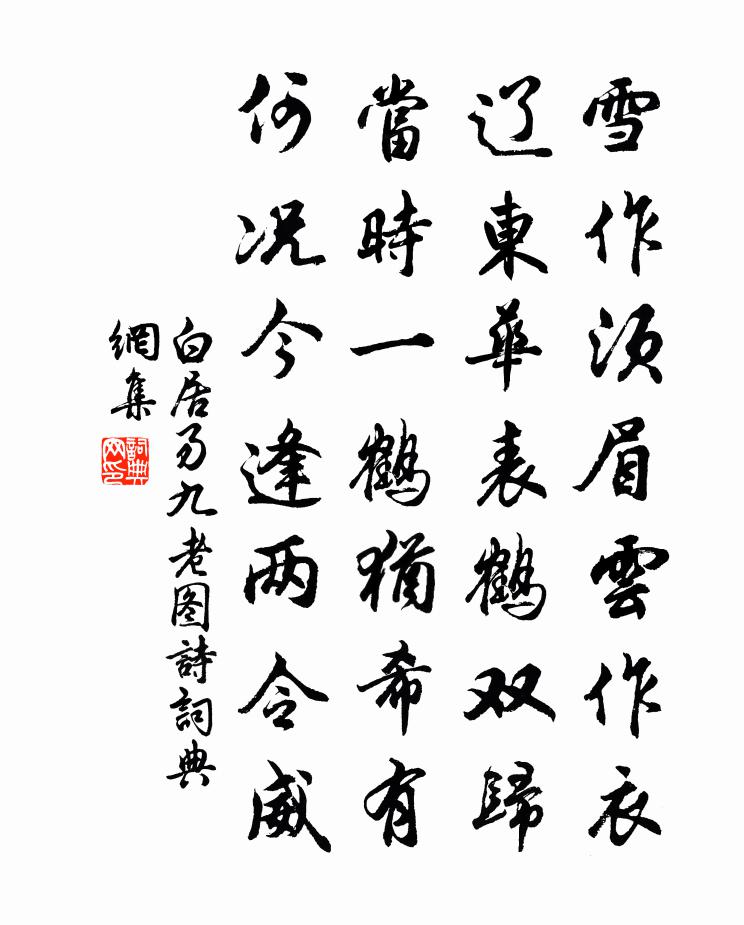 雪作须眉雲作衣
辽東華表鶴双歸
當時一鶴猶希有
何况今逢两令威
白居易九老图詩詞典
網集
詞典
网印